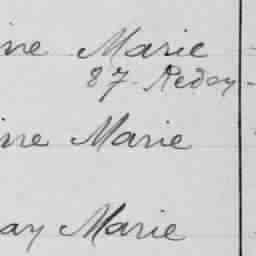 ine Marie
87. Redon
ine Marie
ay Marie